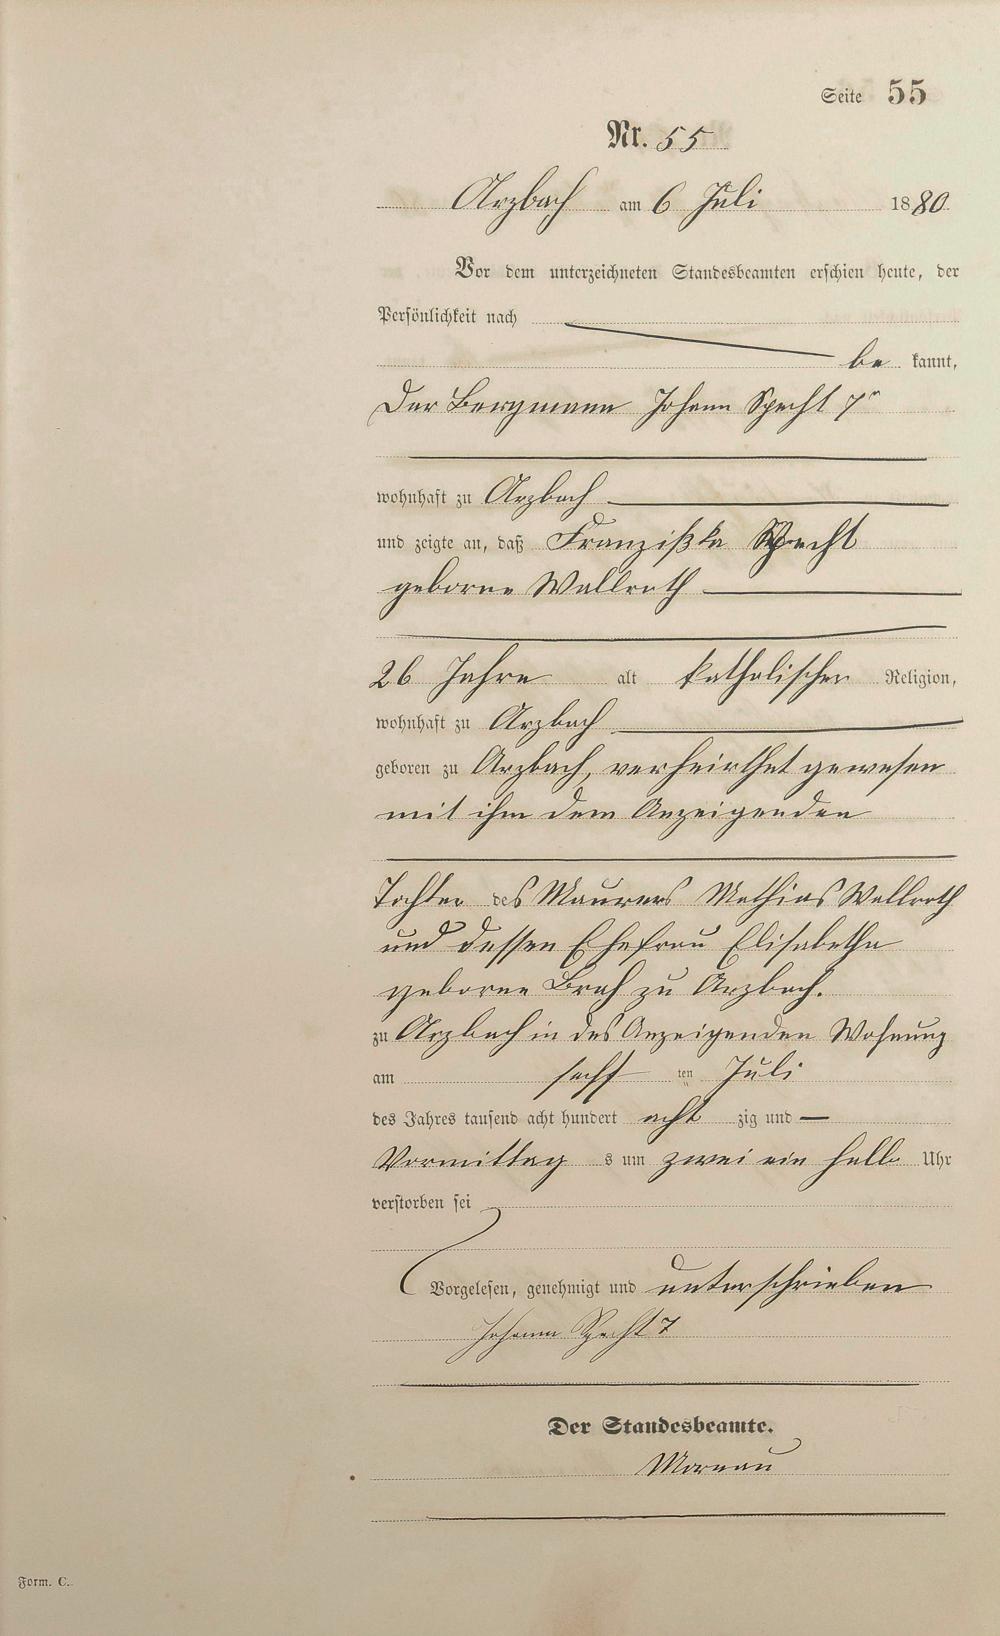 Seite 55
Nr. 55
Arzbach am 6 Juli 1880
Vor dem unterzeichneten Standesbeamten erschien heute, der
Persönlichkeit nach
be kannt,
Der Bergmann Johann Specht 7r
wohnhaft zu Arzbach
und zeigte an, daß Franzißka Specht
geborne Wallroth
26 Jahre alt katholischer Religion,
wohnhaft zu Arzbach
geboren zu Arzbach, verheirthet gewesen
mit ihm dem Anzeigenden
Tochter des Maurers Mathias Wallroth
und dessen Ehefrau Elisabetha
geborne Brah zu Arzbach.
zu Arzbach in des Anzeigenden Wohnung
am sechs ten Juli
des Jahres tausend acht hundert acht zig und —
Vormittag s um zwei ein halb Uhr
verstorben sei
Vorgelesen, genehmigt und unterschrieben
Johann Specht 7
Der Standesbeamte.
Mornau
Form. C.